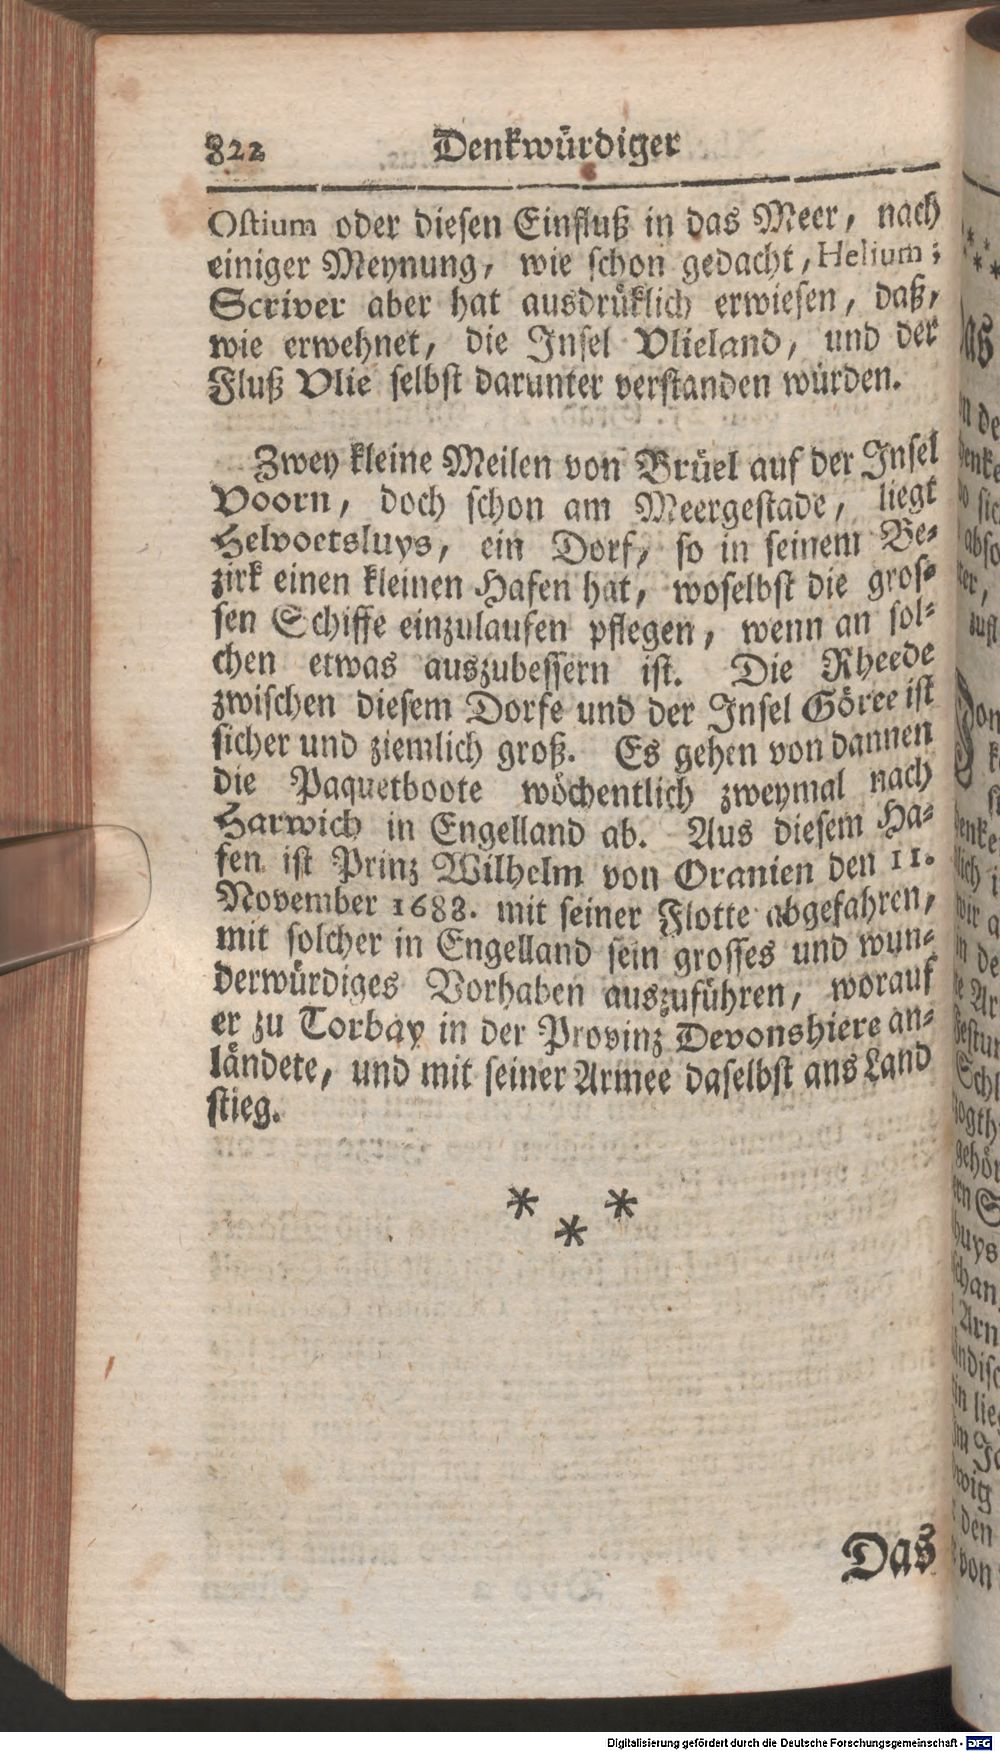 822 Denkwürdiger
Ostium oder diesen Einfluß in das Meer, nach
einiger Meynung, wie schon gedacht, Helium;
Scriver aber hat ausdrüklich erwiesen, daß,
wie erwehnet, die Insel Vlieland, und der
Fluß Vlie selbst darunter verstanden würden.
Zwey kleine Meilen von Brüel auf der Insel
Voorn, doch schon am Meergestade, liegt
Helvoetsluys, ein Dorf, so in seinem Be-
zirk einen kleinen Hafen hat, woselbst die gros-
sen Schiffe einzulaufen pflegen, wenn an sol-
chen etwas auszubessern ist. Die Rheede
zwischen diesem Dorfe und der Insel Göree ist
sicher und ziemlich groß. Es gehen von dannen
die Paquetboote wöchentlich zweymal nach
Harwich in Engelland ab. Aus diesem Ha-
fen ist Prinz Wilhelm von Oranien den 11.
November 1688. mit seiner Flotte abgefahren,
mit solcher in Engelland sein grosses und wun-
derwürdiges Vorhaben auszuführen, worauf
er zu Torbay in der Provinz Devonshiere an-
ländete, und mit seiner Armee daselbst ans Land
stieg.
* * *
Das
Digitalisierung gefördert durch die Deutsche Forschungsgemeinschaft - DFG